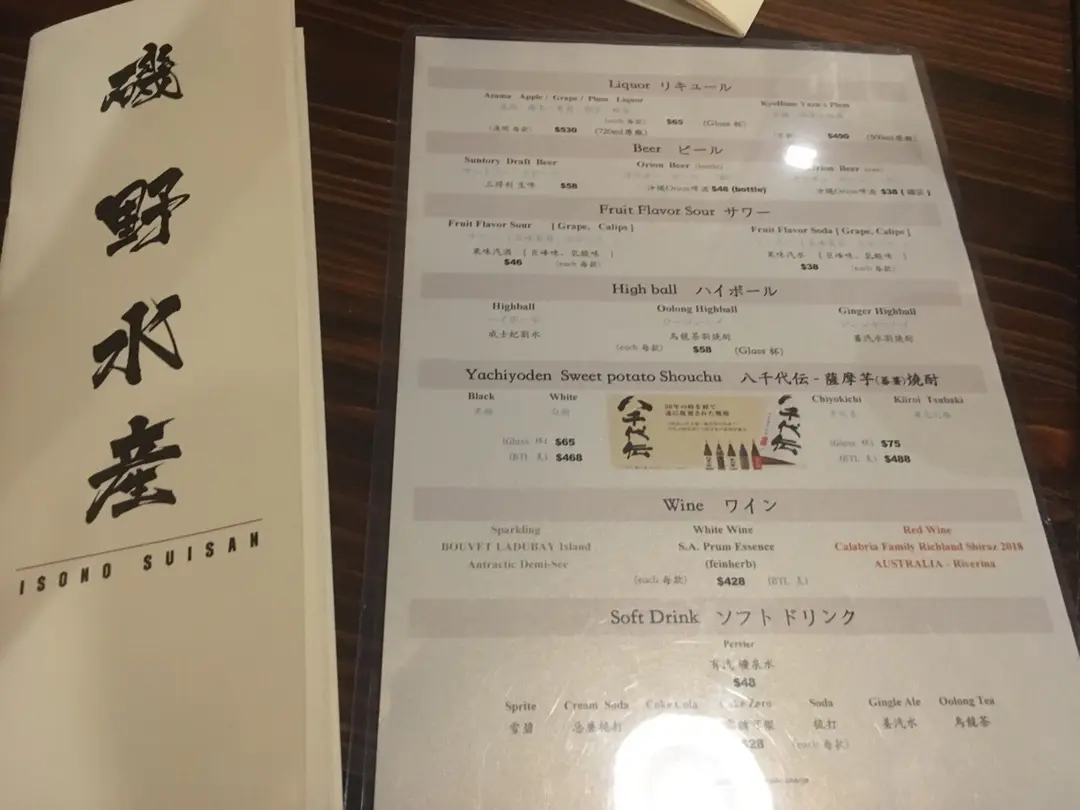 磯野水産
ISONO SUISAN
Liquor リキュール
Azuma Apple / Grape / Plum Liquor
(each 每款) $65 (Glass 杯)
$530 (720ml原瓶)
Plum
$490 (500ml原瓶)
Beer ビール
Suntory Draft Beer
三得利 生啤 $58
Orion Beer (bottle)
沖繩Orion啤酒 $46 (bottle)
Orion Beer
沖繩Orion啤酒 $38 (罐裝)
Fruit Flavor Sour サワー
Fruit Flavor Sour [ Grape, Calips ]
果味汽酒 [ 巨峰味、乳酸味 ]
$46 (each 每款)
Fruit Flavor Soda [ Grape, Calips ]
果味汽水 [ 巨峰味、乳酸味 ]
$38 (each 每款)
High ball ハイボール
Highball
ハイボール
威士忌梳水
Oolong Highball
烏龍茶梳燒酎
Ginger Highball
薑汽水梳燒酎
(each 每款) $58 (Glass 杯)
Yachiyoden Sweet potato Shouchu 八千代伝 - 薩摩芋(蕃薯)焼酎
Black
黑麹
White
白麹
(Glass 杯) $65
(BTL 支) $468
八千代伝
30年の時を経て
遂に復習された焼酎
八千代伝
Chiyokichi
Kiiroi Tsubaki
(Glass 杯) $75
(BTL 支) $488
Wine ワイン
Sparkling
BOUVET LADUBAY Island
Antractic Demi-Sec
White Wine
S.A. Prum Essence
(feinherb)
Red Wine
Calabria Family Richland Shiraz 2018
AUSTRALIA - Riverina
(each 每款) $428 (BTL 支)
Soft Drink ソフトドリンク
Perrier
有汽礦泉水
$48
Sprite
雪碧
Cream Soda
忌廉梳打
Coke Cola
Coke Zero
Soda
梳打
Gingle Ale
薑汽水
Oolong Tea
烏龍茶
$28 (each 每款)